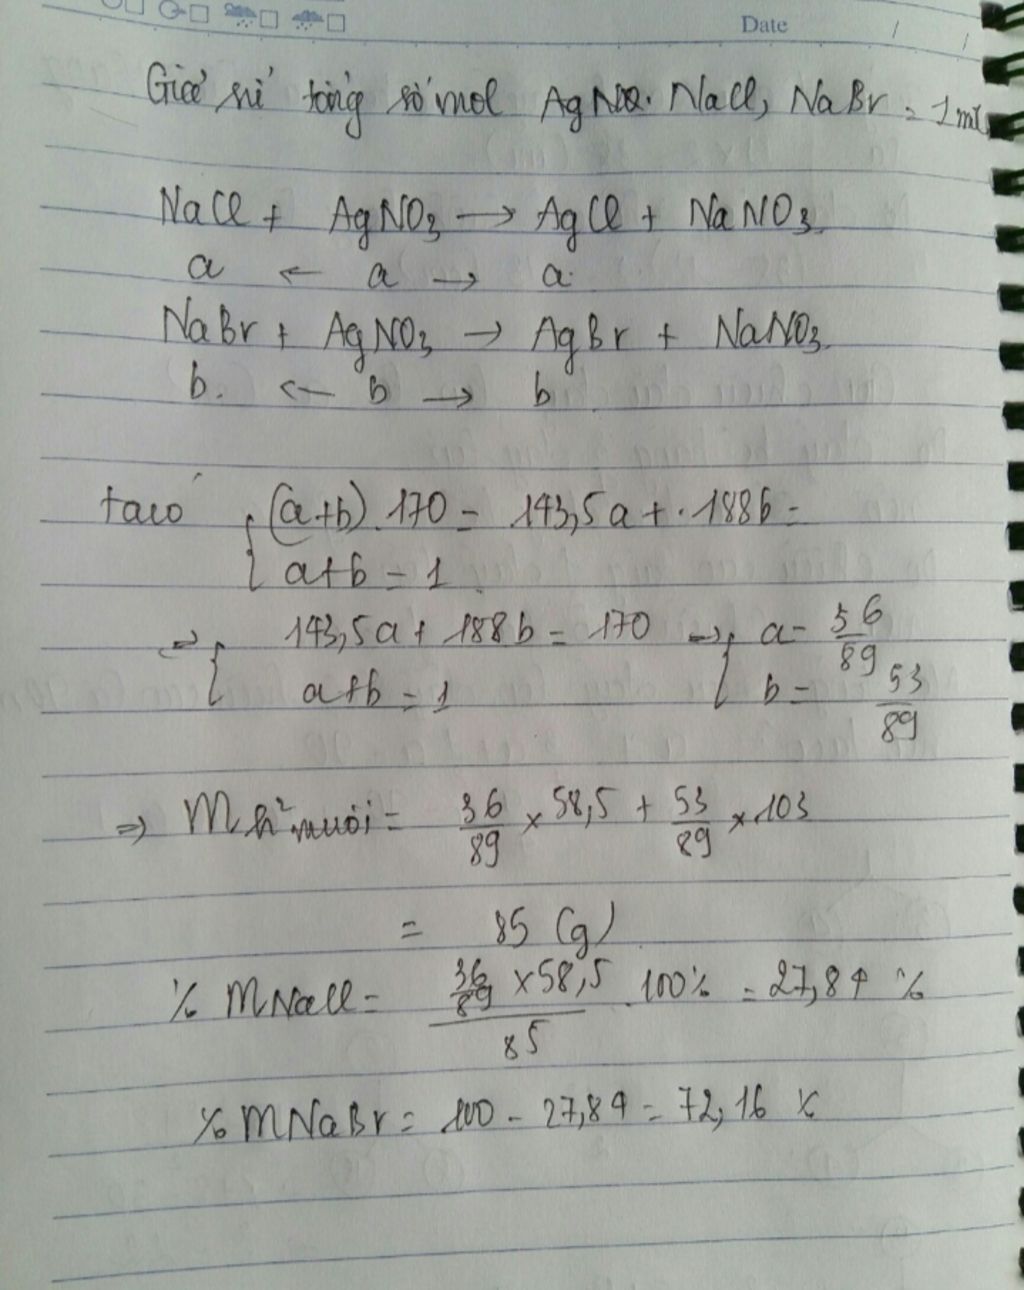 Date / /
Giả sử tổng số mol AgNO3. NaCl, NaBr = 1 mol
NaCl + AgNO3 → AgCl + NaNO3.
a ← a → a.
NaBr + AgNO3 → AgBr + NaNO3.
b. ← b → b
ta có { (a+b).170 = 143,5a + .188b =
a+b = 1
=> { 143,5a + 188b = 170 => { a = 36/89
a+b = 1 b = 53/89
=> m h² muối = 36/89 × 58,5 + 53/89 × 103
= 85 (g)
% mNaCl = (36/89 × 58,5)/85 . 100% = 27,84 %
% mNaBr = 100 - 27,84 = 72,16 %